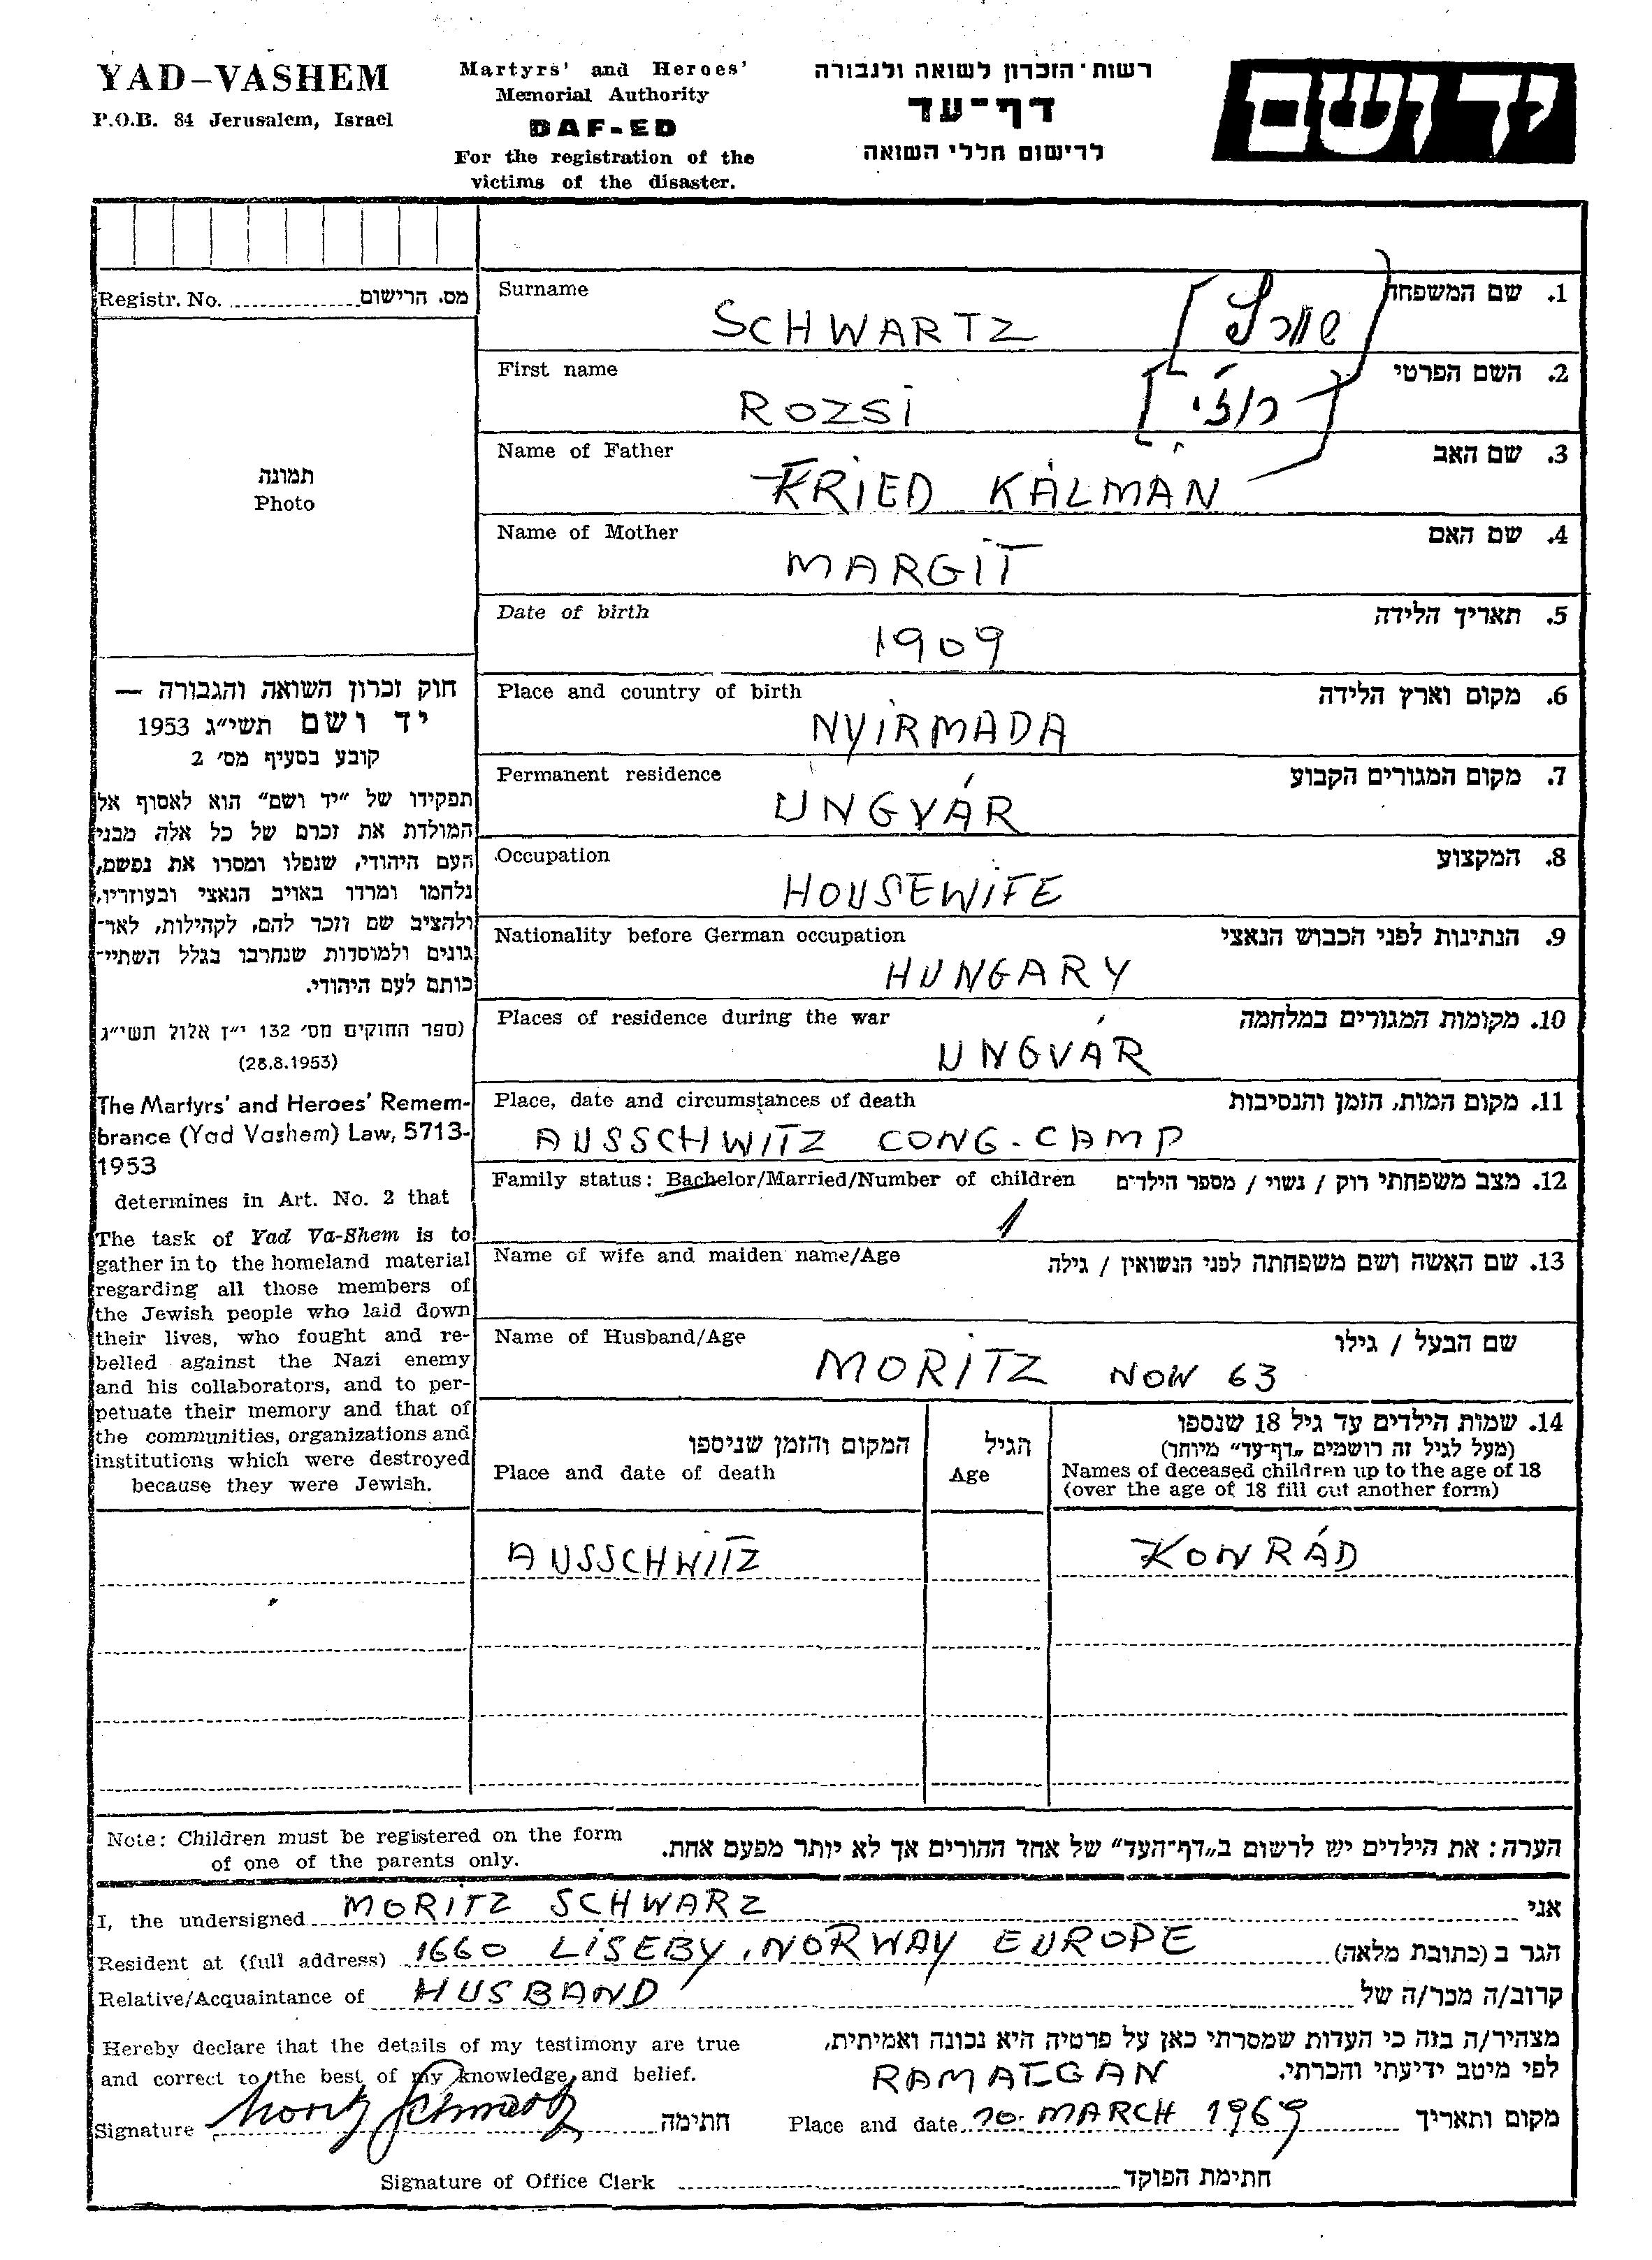 YAD-VASHEM
P.O.B. 84 Jerusalem, Israel
Martyrs' and Heroes'
Memorial Authority
DAF-ED
For the registration of the
victims of the disaster.
רשות-הזכרון לשואה ולגבורה
דף-עד
לרישום חללי השואה
יד ושם
Registr. No. מס. הרישום
תמונה
Photo
חוק זכרון השואה והגבורה —
יד ושם תשי״ג 1953
קובע בסעיף מס׳ 2
תפקידו של ״יד ושם״ הוא לאסוף אל
המולדת את זכרם של כל אלה מבני
העם היהודי, שנפלו ומסרו את נפשם,
נלחמו ומרדו באויב הנאצי ובעוזריו,
ולהציב שם וזכר להם, לקהילות, לאר-
גונים ולמוסדות שנחרבו בגלל השתיי-
כותם לעם היהודי.
(ספר החוקים מס׳ 132 י״ז אלול תשי״ג
(28.8.1953)
The Martyrs' and Heroes' Remem-
brance (Yad Vashem) Law, 5713-
1953
determines in Art. No. 2 that
The task of Yad Va-Shem is to
gather in to the homeland material
regarding all those members of
the Jewish people who laid down
their lives, who fought and re-
belled against the Nazi enemy
and his collaborators, and to per-
petuate their memory and that of
the communities, organizations and
institutions which were destroyed
because they were Jewish.
Surname 1. שם המשפחה
SCHWARTZ [שורץ]
First name 2. השם הפרטי
ROZSI [רוז'י]
Name of Father 3. שם האב
FRIED KÁLMÁN
Name of Mother 4. שם האם
MARGIT
Date of birth 5. תאריך הלידה
1909
Place and country of birth 6. מקום וארץ הלידה
NYIRMADA
Permanent residence 7. מקום המגורים הקבוע
UNGVÁR
Occupation 8. המקצוע
HOUSEWIFE
Nationality before German occupation 9. הנתינות לפני הכבוש הנאצי
HUNGARY
Places of residence during the war 10. מקומות המגורים במלחמה
UNGVÁR
Place, date and circumstances of death 11. מקום המות, הזמן והנסיבות
AUSSCHWITZ CONG-CAMP
Family status: Bachelor/Married/Number of children 12. מצב משפחתי רוק / נשוי / מספר הילדים
1
Name of wife and maiden name/Age 13. שם האשה ושם משפחתה לפני הנשואין / גילה
Name of Husband/Age שם הבעל / גילו
MORITZ NOW 63
המקום והזמן שניספו
Place and date of death
הגיל
Age
14. שמות הילדים עד גיל 18 שנספו
(מעל לגיל זה רושמים „דף-עד״ מיוחד)
Names of deceased children up to the age of 18
(over the age of 18 fill out another form)
AUSSCHWITZ KONRÁD
Note: Children must be registered on the form
of one of the parents only.
הערה: את הילדים יש לרשום ב„דף-העד״ של אחד ההורים אך לא יותר מפעם אחת.
I, the undersigned MORITZ SCHWARZ אני
Resident at (full address) 1660 LISEBY, NORWAY EUROPE הגר ב (כתובת מלאה)
Relative/Acquaintance of HUSBAND קרוב/ה מכר/ה של
Hereby declare that the details of my testimony are true
and correct to the best of my knowledge and belief.
מצהיר/ה בזה כי העדות שמסרתי כאן על פרטיה היא נכונה ואמיתית,
לפי מיטב ידיעתי והכרתי.
RAMATGAN
Signature Moritz Schwartz חתימה
Place and date 10. MARCH 1969 מקום ותאריך
Signature of Office Clerk חתימת הפוקד